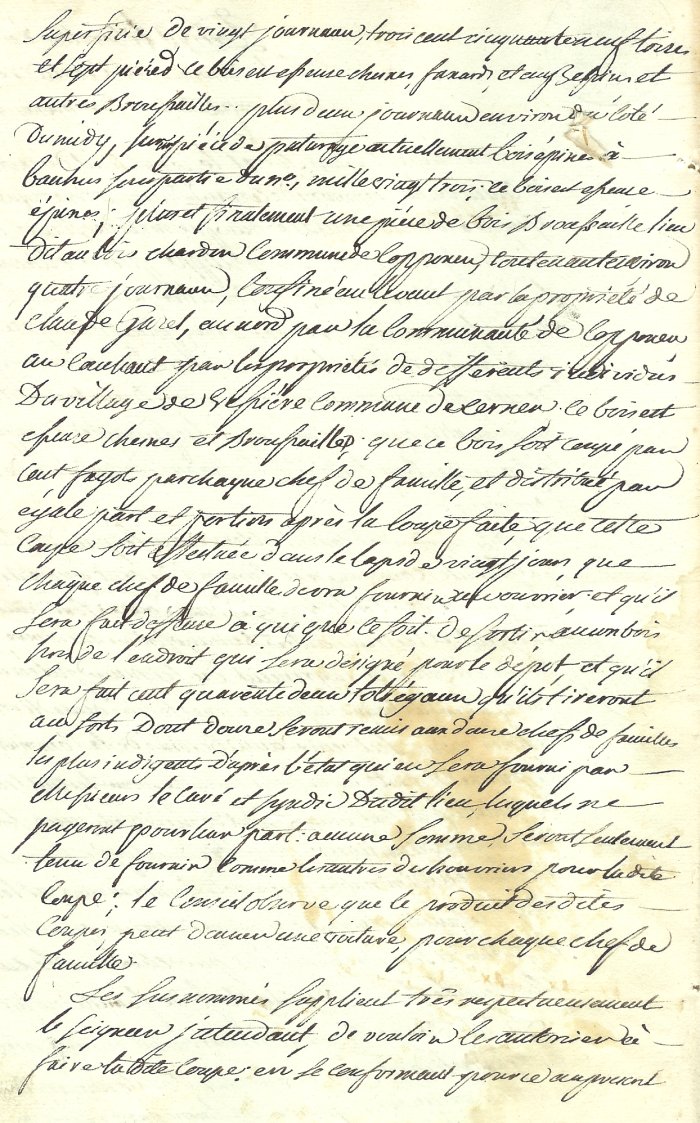 Superficie de vingt journaux, trois cent cinquante neuf toises
et sept pieds ce bois est essence chenes, et
autres Broussailles.. plus deux journaux environ du Côté
Du midy, sur piéce de paturage actuellement bois épines à
sous partie du no, mille vingt trois; ce bois est essence
épines; plus et finalement une piéce de bois Broussaille lieu
dit au bois chardon Commune de Copponex, contenant environ
quatre journaux, Confiné au levant par la propriété de
Claude au nord par la Communauté de Copponex
au Couchant par les propriétés de differents individus
Du village de Commune de Cernex. ce bois est
essence chenes et Broussailles, que ce bois soit coupé par
cent fagots par chaque chef de famille, et distribué par
égale part et portion après la Coupe faite, que cette
Coupe soit effectuée dans le laps de vingt jours que
chaque chef de famille devra fournir un ouvrier et qu'il
Sera fait défense à qui que ce soit. de sortir aucun bois
hors de l'endroit qui sera désigné pour le dépot et qu'il
Sera fait cent quarente deux lots égaux qu'ils tireront
au sorts Dont douze seront remis aux douze chefs de familles
les plus indigents D'après l'état qui en sera fourni par
Messieurs le Curé et syndic Dudit lieu, lesquels ne
payeront pour leur part: aucune Somme, seront seulement
tenu de fournir comme les autres des houvriers pour la dite
Coupe; le Conseil observe que le produit des dites
Coupes, peut donner une voiture, pour chaque chef de
famille.
Les susnommés supplient très respectueusement
le seigneur jntendant, de vouloir les autoriser à
faire la dite Coupe; en se conformant pour ce au présent